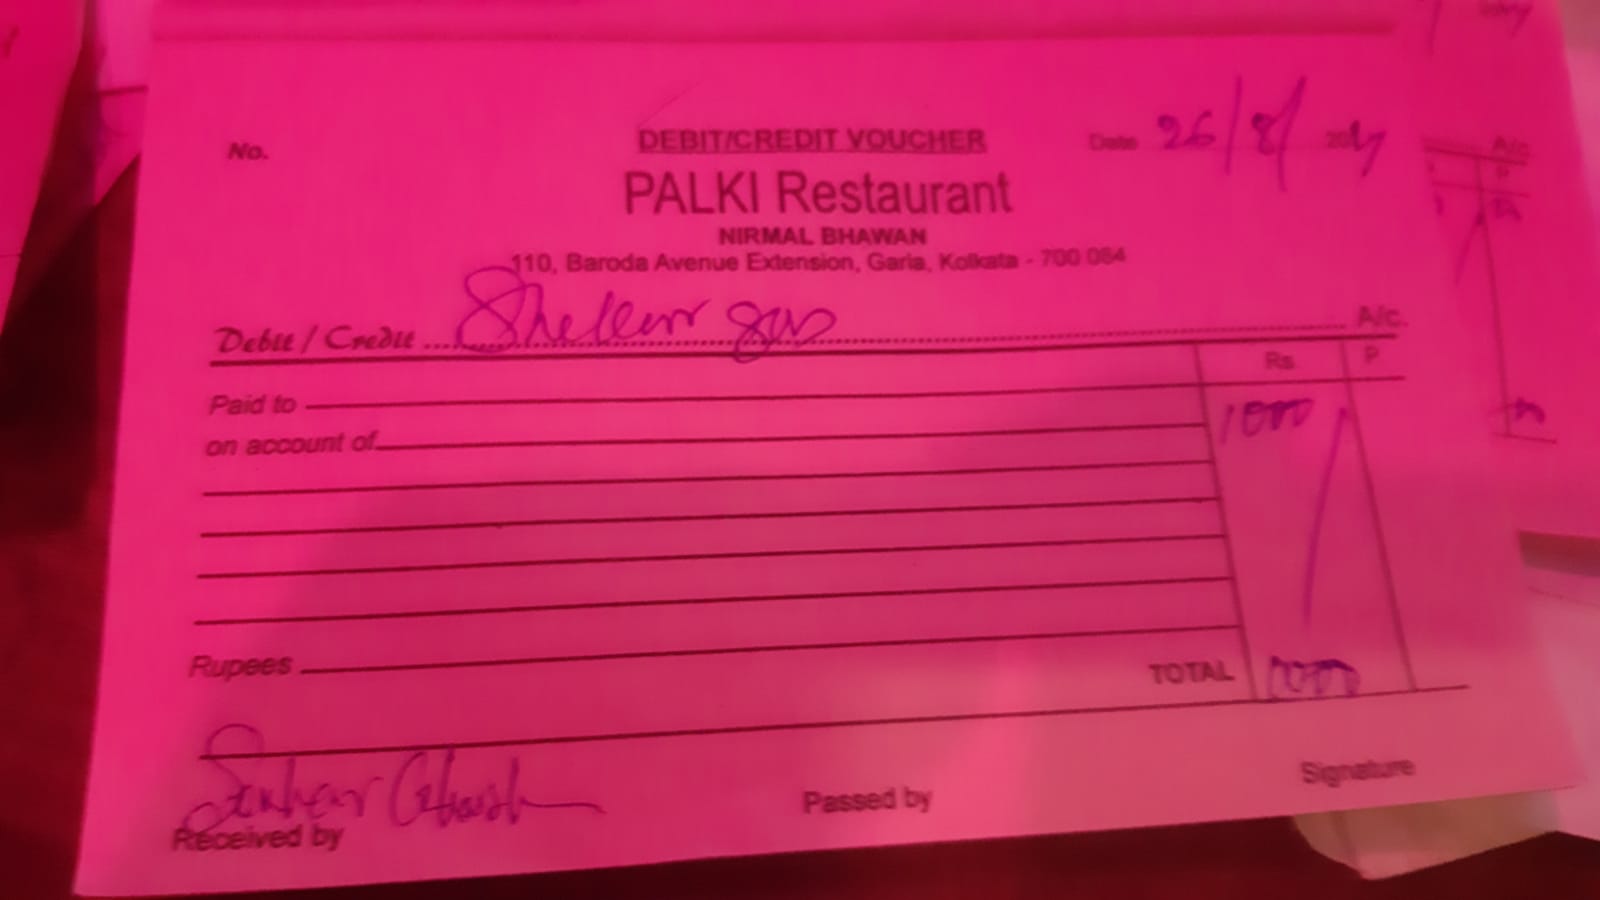 No.
DEBIT/CREDIT VOUCHER
Date 26/8/
PALKI Restaurant
NIRMAL BHAWAN
110, Baroda Avenue Extension, Garia, Kolkata - 700 084
Debit / Credit
A/c.
Rs P
Paid to
1000
on account of
Rupees
TOTAL 1000
Ghosh
Received by
Passed by
Signature
A/c
P